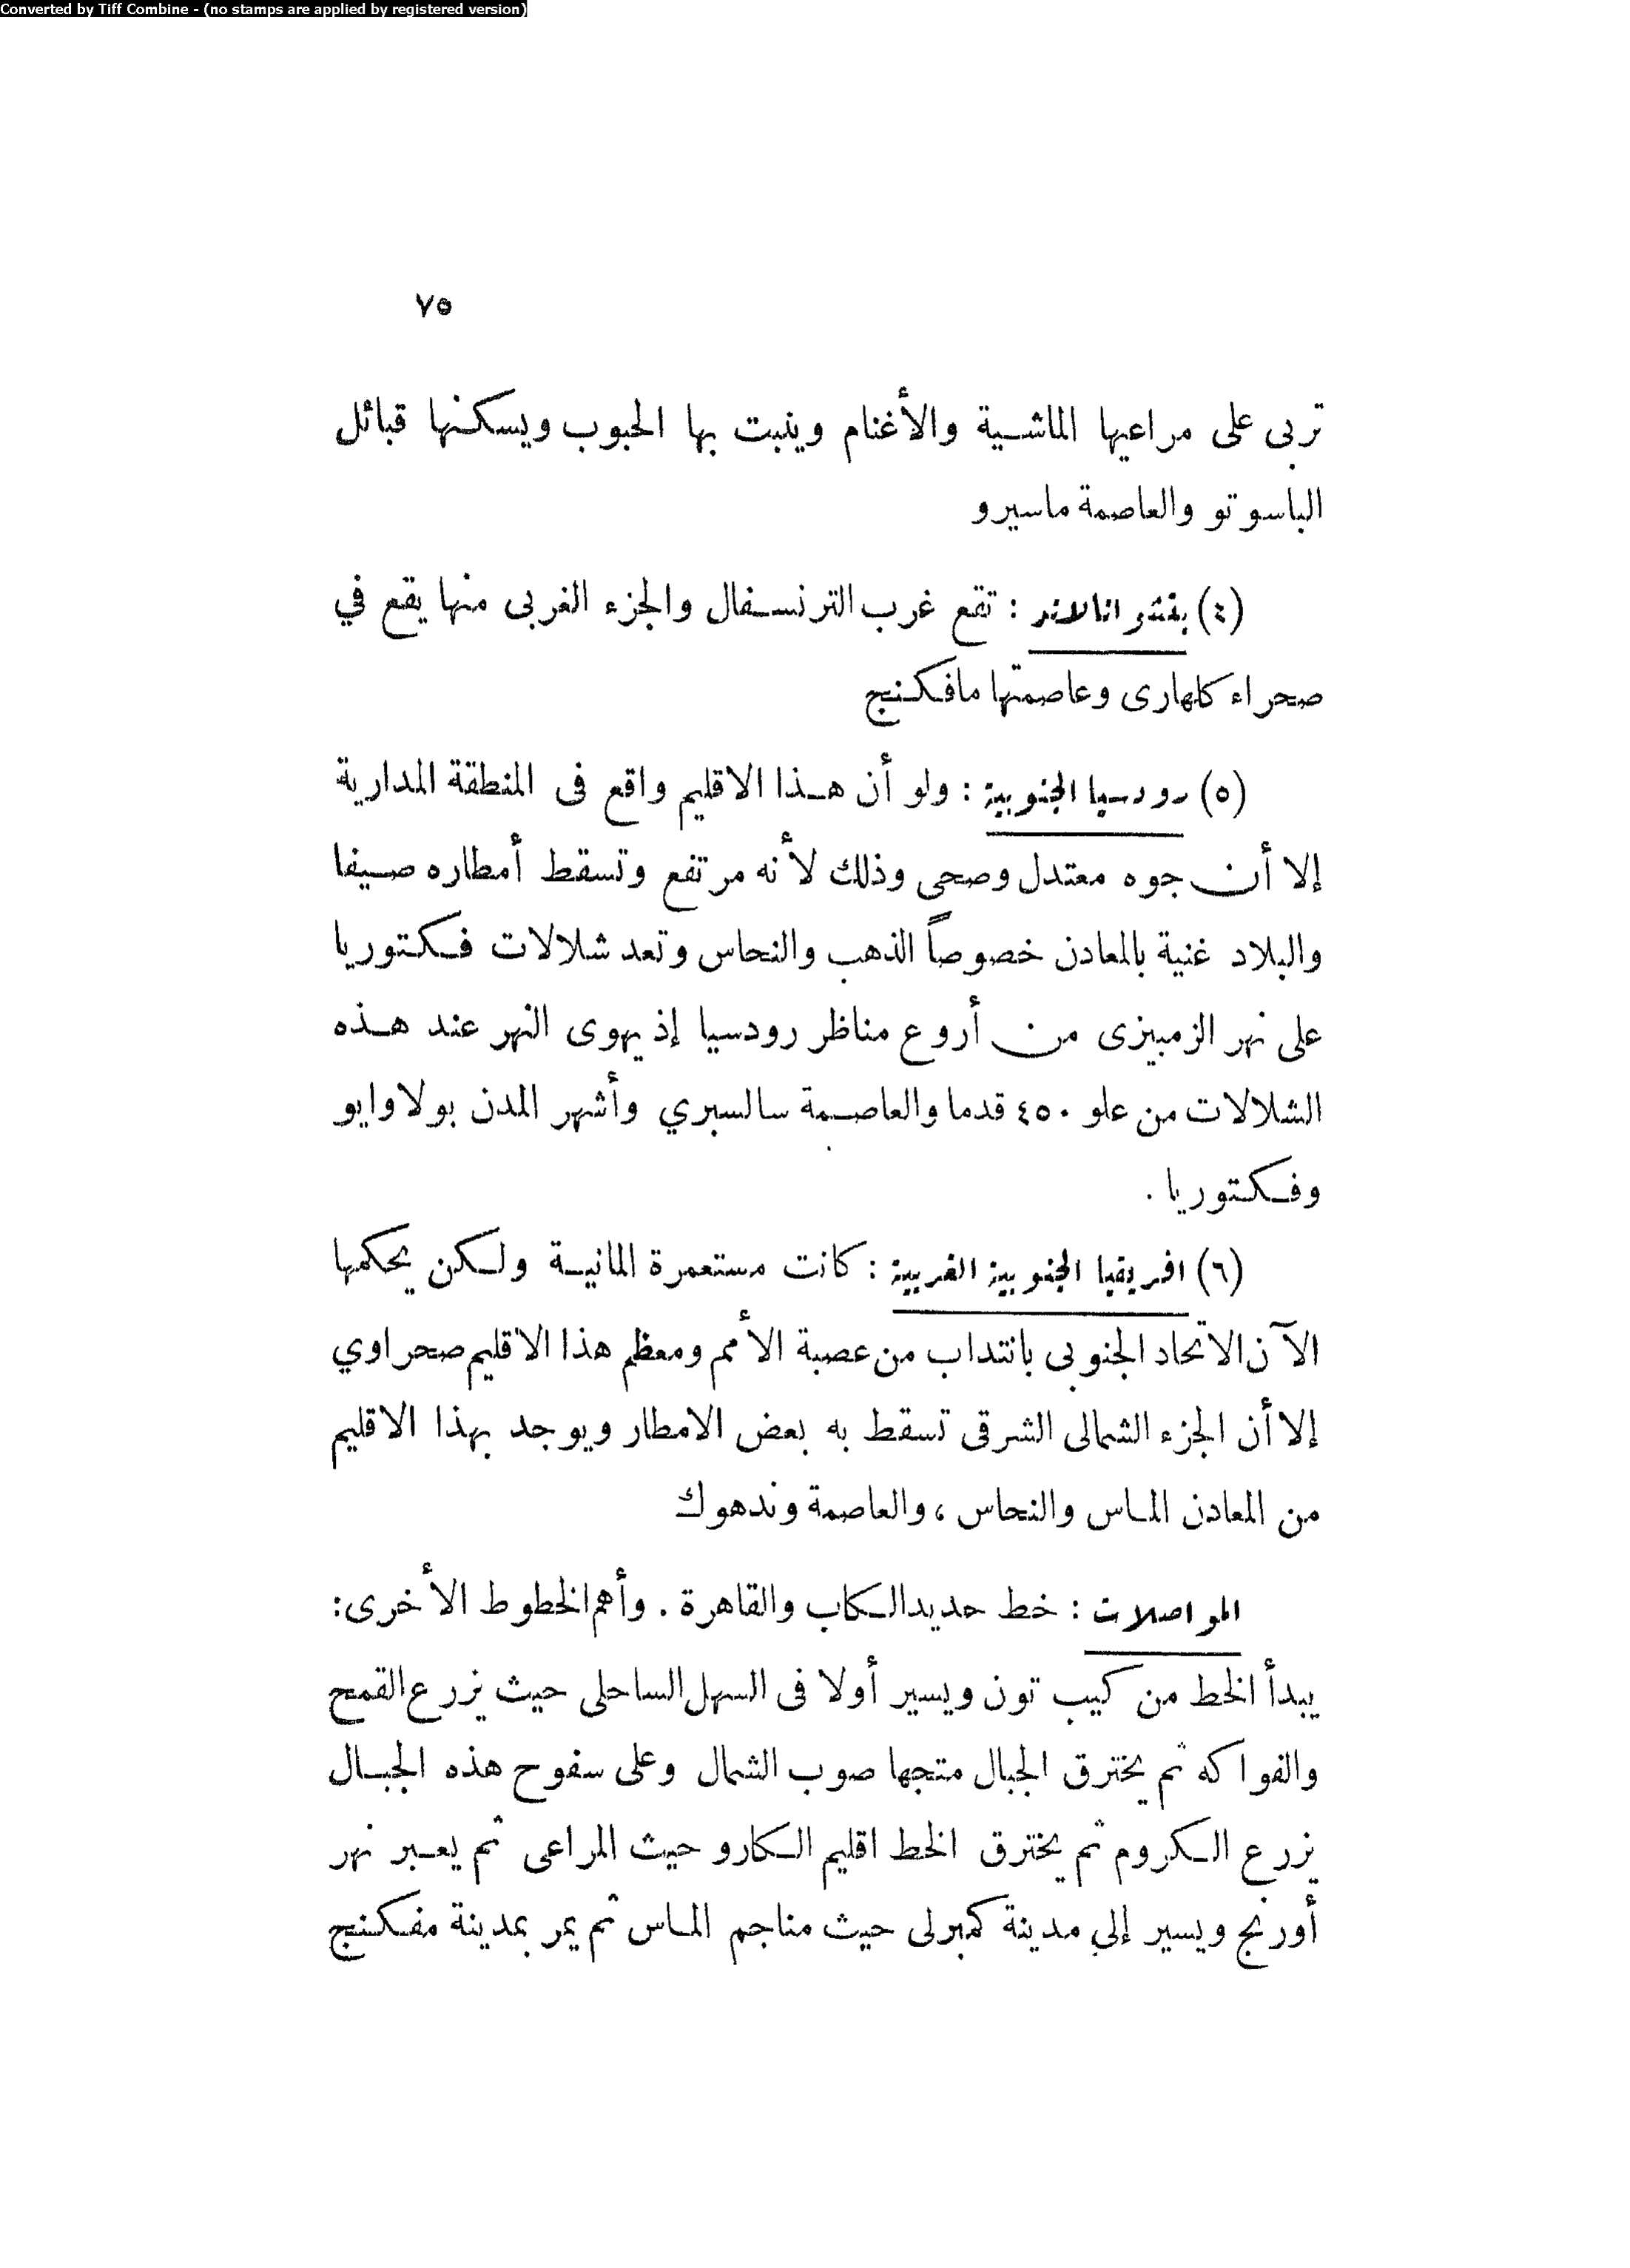 Converted by Tiff Combine - (no stamps are applied by registered version)
٧٥
تربى على مراعيها الماشية والأغنام وينبت بها الحبوب ويسكنها قبائل
الباسوتو والعاصمة ماسيرو
(٤) بتشوانالاند : تقع غرب الترنسفال والجزء الغربى منها يقع في
صحراء كلهارى وعاصمتها مافكنج
(٥) رودسيا الجنوبية : ولو أن هذا الاقليم واقع فى المنطقة المدارية
إلا أن جوه معتدل وصحى وذلك لأنه مرتفع وتسقط أمطاره صيفا
والبلاد غنية بالمعادن خصوصاً الذهب والنحاس وتعد شلالات فكتوريا
على نهر الزمبيزى من أروع مناظر رودسيا إذ يهوى النهر عند هذه
الشلالات من علو ٤٥٠ قدما والعاصمة سالسبري وأشهر المدن بولاوايو
وفكتوريا .
(٦) افريقيا الجنوبية الغربية : كانت مستعمرة المانية ولكن يحكمها
الآن الاتحاد الجنوبى بانتداب من عصبة الأمم ومعظم هذا الاقليم صحراوي
إلا أن الجزء الشمالى الشرقى تسقط به بعض الامطار ويوجد بهذا الاقليم
من المعادن الماس والنحاس ، والعاصمة وندهوك
المواصلات : خط حديد الكاب والقاهرة . وأهم الخطوط الأخرى :
يبدأ الخط من كيب تون ويسير أولا فى السهل الساحلى حيث يزرع القمح
والفواكه ثم يخترق الجبال متجها صوب الشمال وعلى سفوح هذه الجبال
يزرع الكروم ثم يخترق الخط اقليم الكارو حيث المراعى ثم يعبر نهر
أورنج ويسير إلي مدينة كمبرلى حيث مناجم الماس ثم يمر بمدينة مفكنج